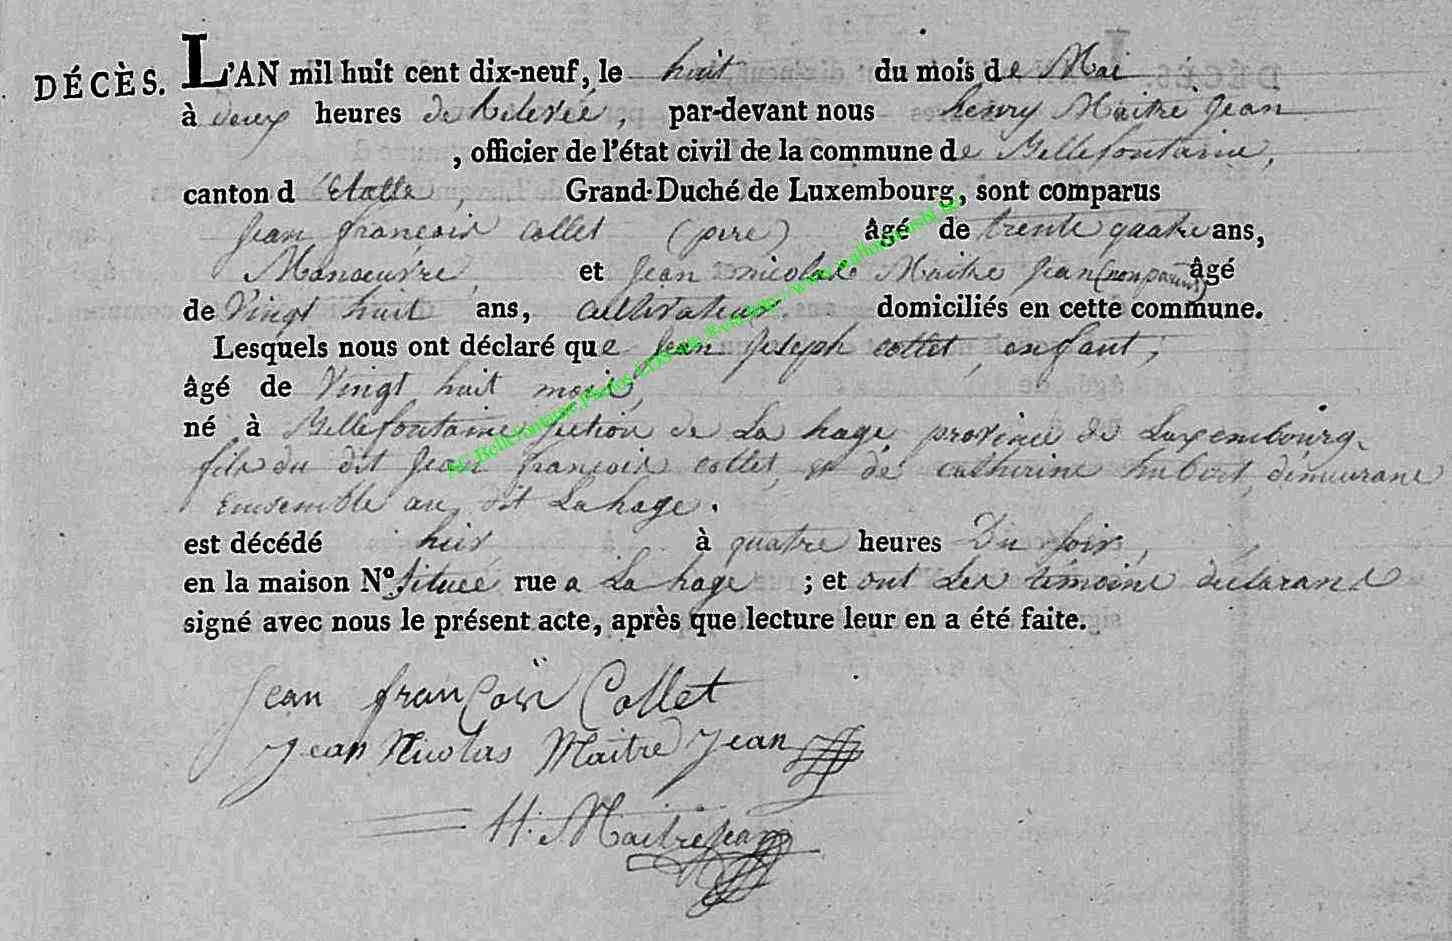 DÉCÈS. L'AN mil huit cent dix-neuf, le huit du mois de Mai
à deux heures de Relevée, par-devant nous henry Maitre Jean
, officier de l'état civil de la commune de Bellefontaine,
canton d'Etalle, Grand-Duché de Luxembourg, sont comparus
Jean françois collet (pere) âgé de trente quatre ans,
Manoeuvre, et Jean nicolas Maitre Jean (non parent) âgé
de Vingt huit ans, cultivateur. domiciliés en cette commune.
Lesquels nous ont déclaré que Jean Joseph collet, enfant,
âgé de Vingt huit mois,
né à Bellefontaine section de La hage province de Luxembourg,
fils du dit Jean françois collet, et de catherine hubert, demeurant
Ensemble au dit La hage.
est décédé hier à quatre heures Du soir,
en la maison N° située rue a La hage ; et ont les témoins declarans
signé avec nous le présent acte, après que lecture leur en a été faite.
Jean françois Collet
Jean Nicolas Maitre Jean
H. Maitrejean